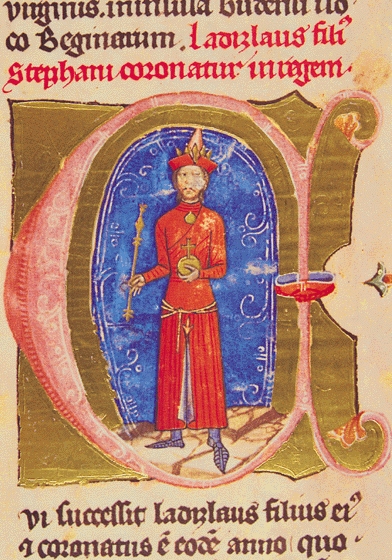 virginis. in insula Budensi
co Beginarum. Ladizlaus filiꝰ
Stephani coronatur in regem.
Cui successit ladizlaus filius eiꝰ
⁊ coronatus ē eodē anno quo